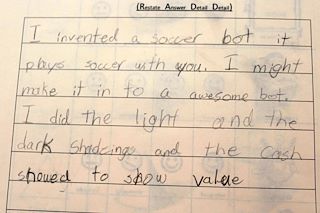 (Restate Answer Detail Detail)
I invented a soccer bot it
plays soccer with you. I might
make it in to a awesome bot.
I did the light and the
dark Shadeings and the cash
showed to show value